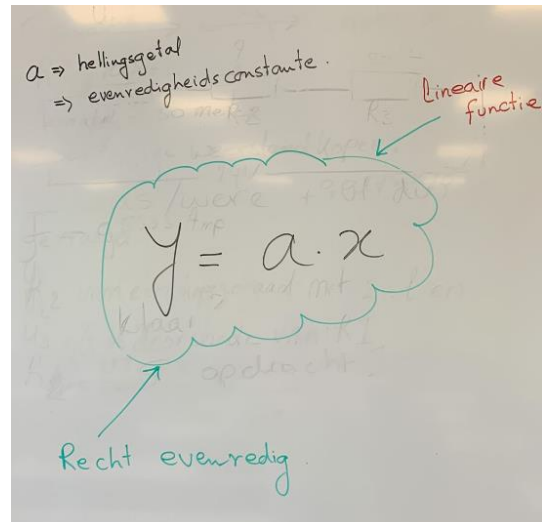 a ⇒ hellingsgetal
⇒ evenredigheidsconstante.
Lineaire
functie
y = a · x
klaar
opdracht.
Recht evenredig